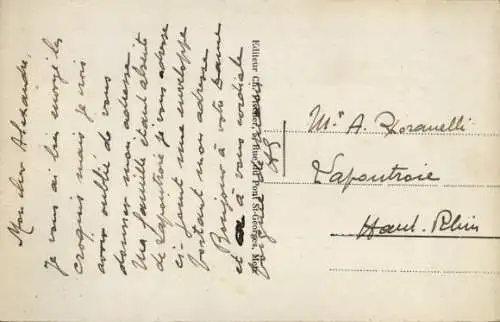 Mon cher Alexandre,
je vous ai bien envoyé les
croquis mais je crois
avoir oublié de vous
donner mon adresse
Ma famille étant absente
de Lapoutroie je vous adresse
ci-joint une enveloppe
portant mon adresse
Bonjour à votre Dame
et à vous cordiale
Editeur Ch. 57 Rue du Pont St-Georges, Metz
Mr A.
Lapoutroie
Haut-Rhin